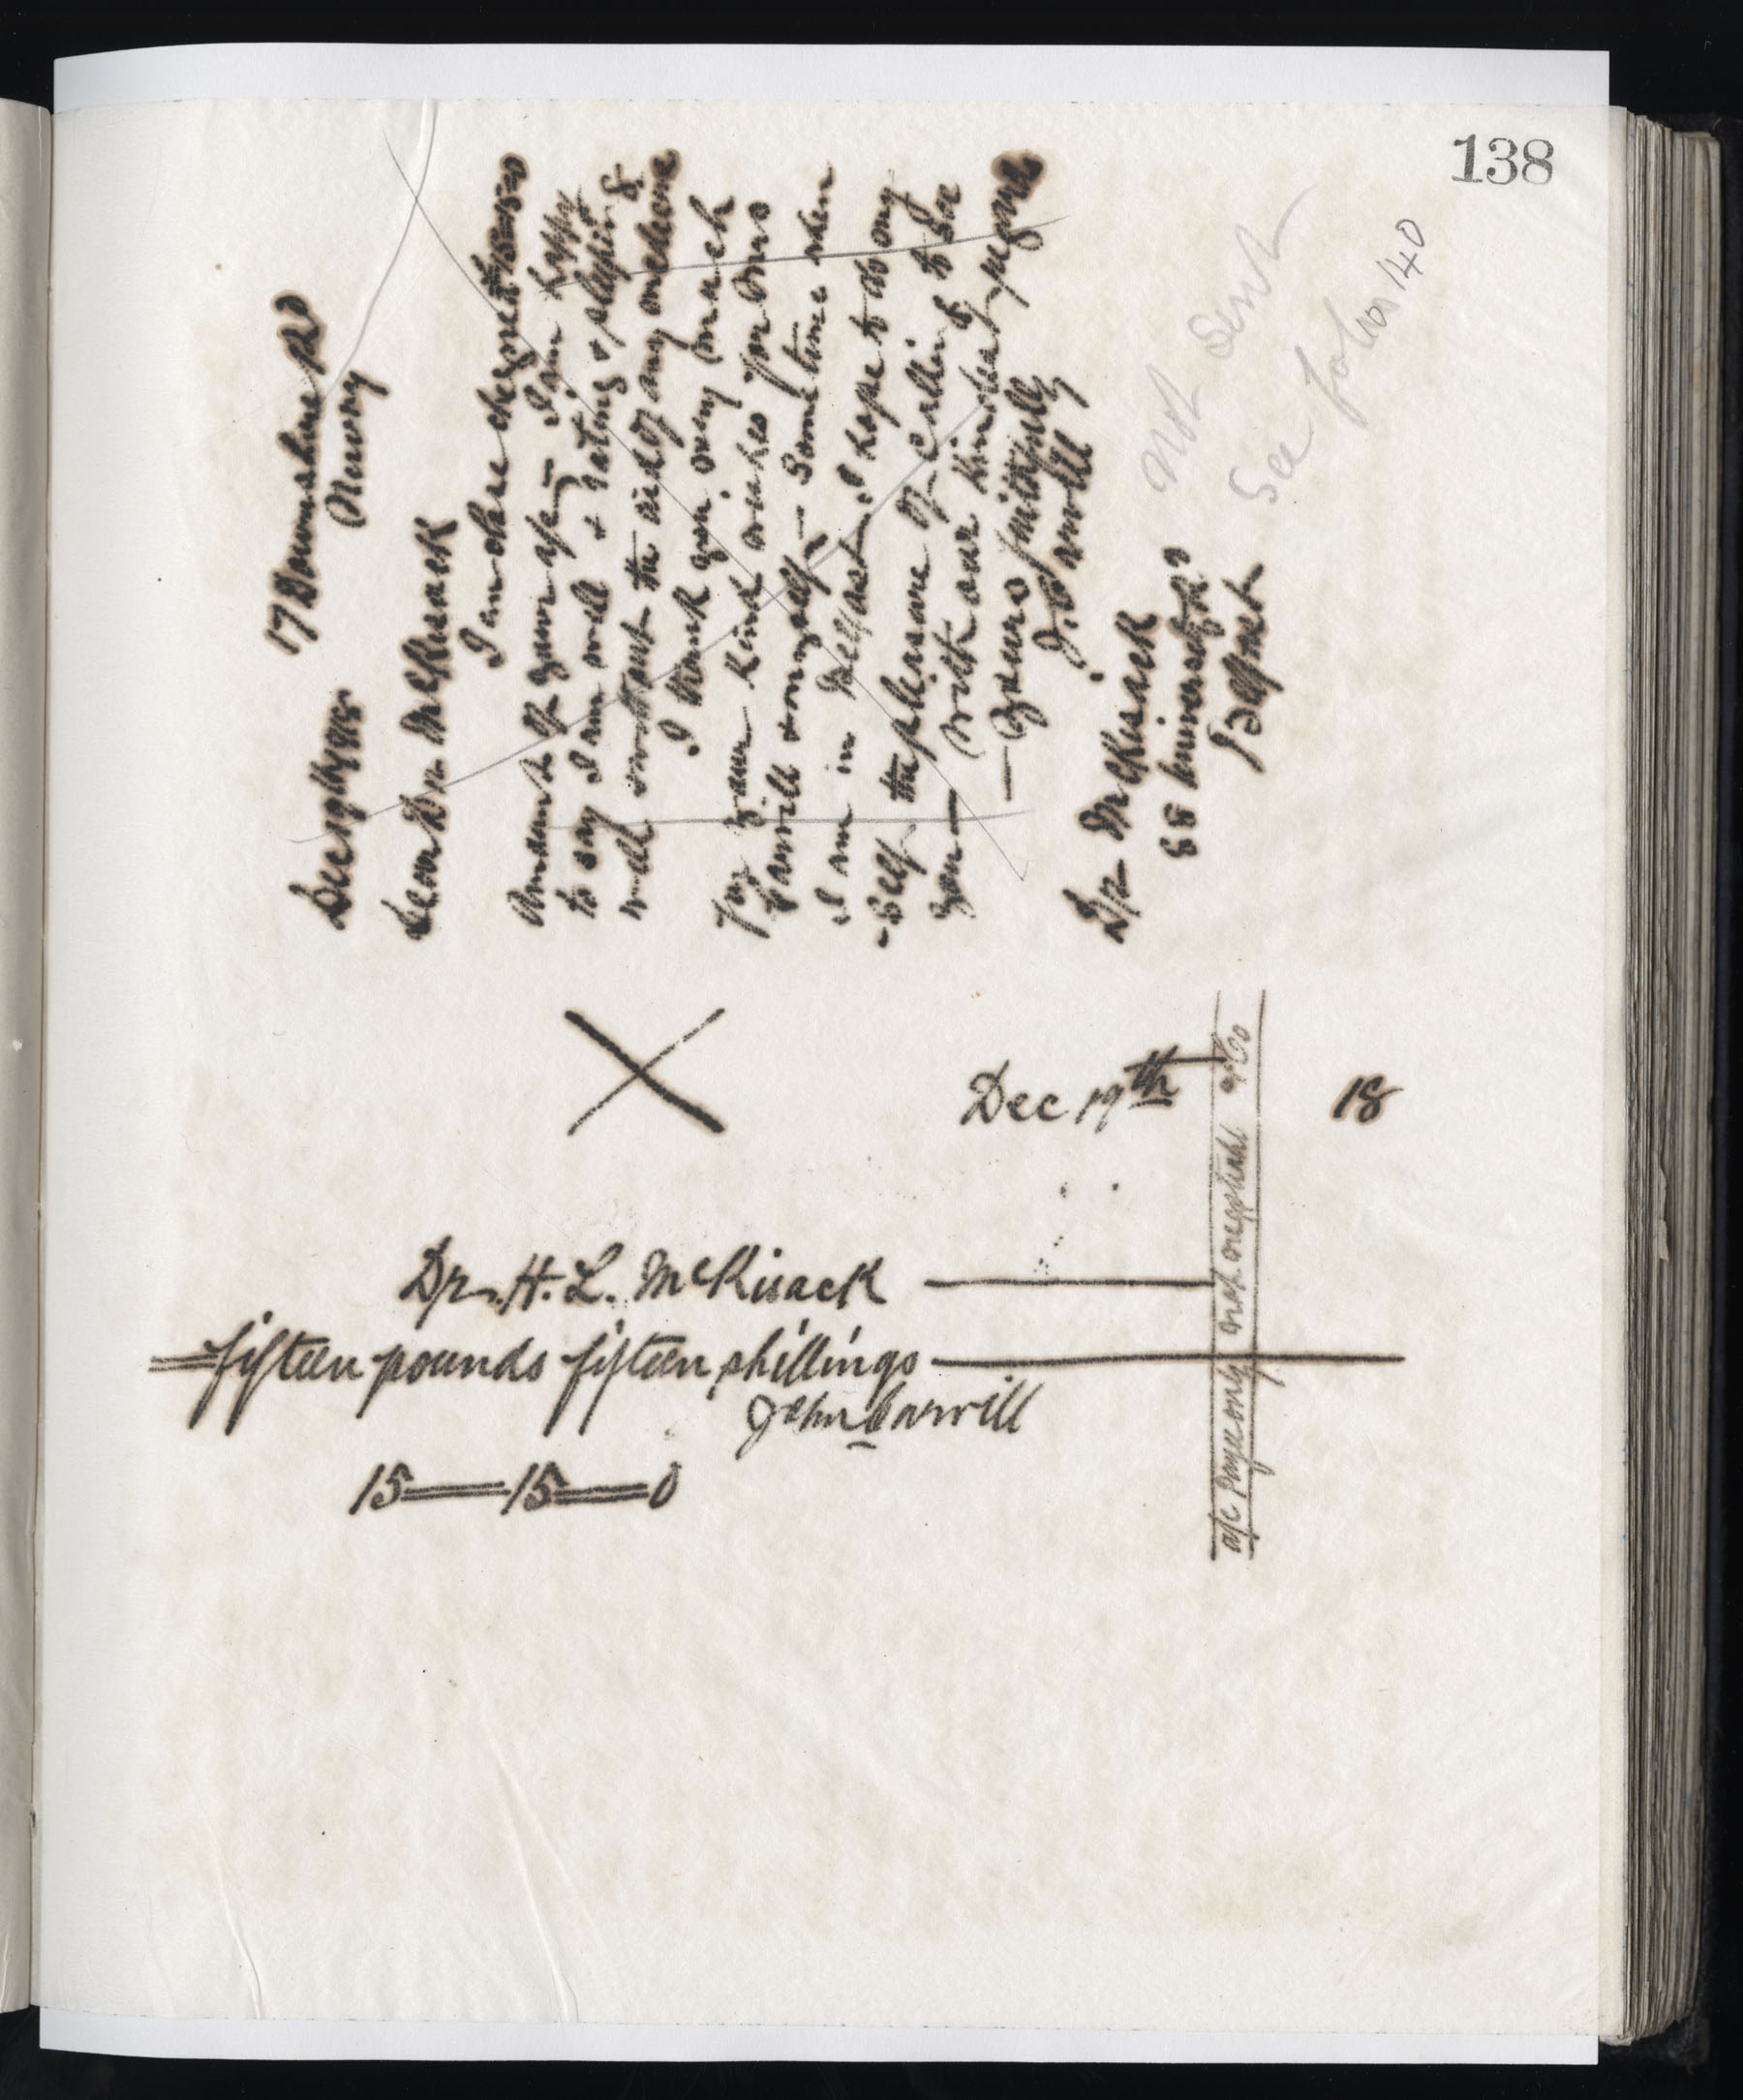 138
17 Downshire Rd
Newry
Dec 19th 1918
Dear Dr McKisack
I enclose cheque 15-15-0
Amount of your a/c - I am happy
to say I am well & eating & sleeping &
well without the aid of any medicine
I thank you very much
for your kind wishes for Mrs
Carvill & myself - Some time when
I am in Belfast I hope to do my
-self the pleasure of calling to see
you — With our kindest regards
— Yours faithfully
J. Carvill
Dr McKisack
88 University Rd
Belfast
Not Sent
See folio 140
Dec 19th 18
Dr. H. L. McKisack
fifteen pounds fifteen shillings
John Carvill
15 — 15 — 0
a/c Payee only not negotiable & Co